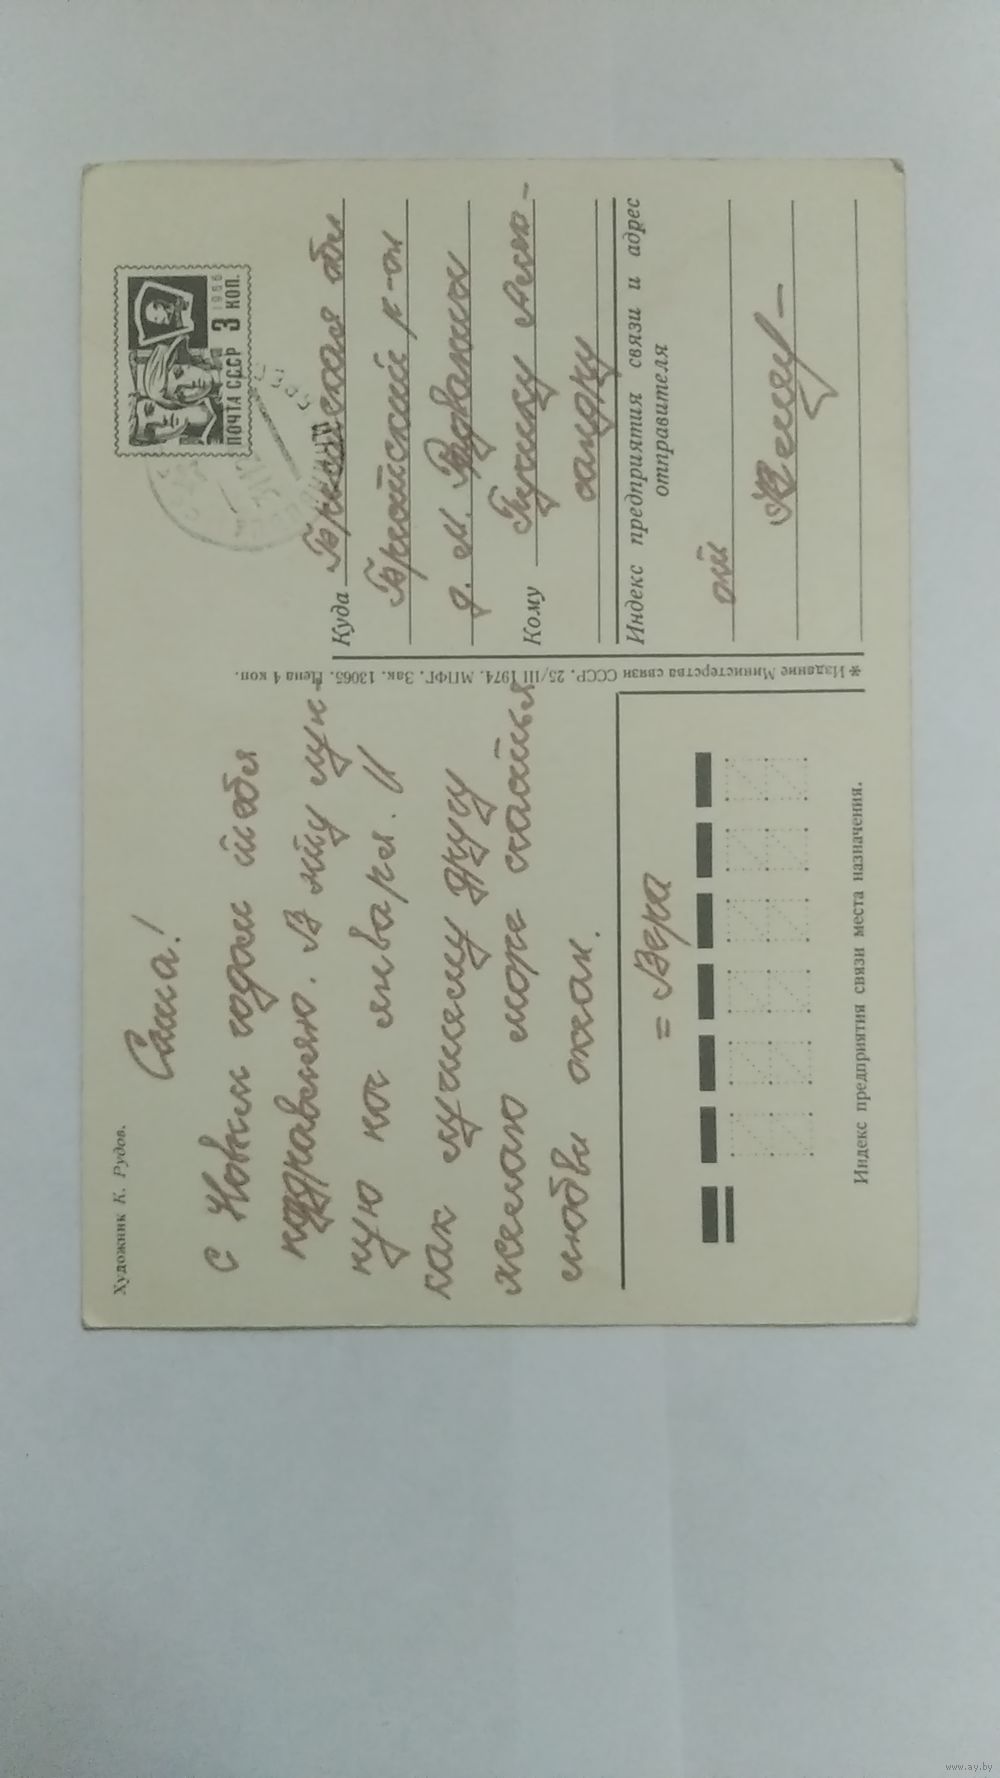 Художник К. Рудов.
Саша!
С Новым годом тебя
поздравляю. В эту лун-
ную ночь января. И
как лучшему другу
желаю море счастья
любви океан.
= Вера
Индекс предприятия связи места назначения.
✱Издание Министерства связи СССР. 25/III 1974. МПФГ. Зак. 13065. Цена 4 коп.
ПОЧТА СССР 3 КОП.
1966
Куда Брестская обл
Брестский р-он
д. М. Радваничи
Кому Пучику Алек-
сандру
Индекс предприятия связи и адрес
отправителя
от